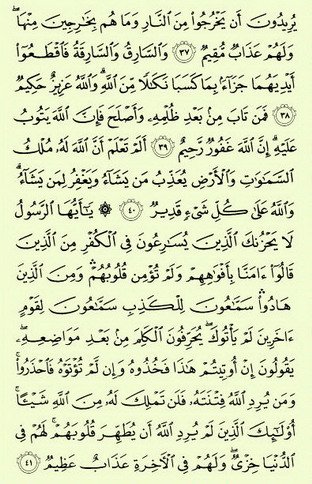 يُرِيدُونَ أَن يَخْرُجُوا۟ مِنَ ٱلنَّارِ وَمَا هُم بِخَـٰرِجِينَ مِنْهَا ۖ
وَلَهُمْ عَذَابٌ مُّقِيمٌ ٣٧ وَٱلسَّارِقُ وَٱلسَّارِقَةُ فَٱقْطَعُوٓا۟
أَيْدِيَهُمَا جَزَآءًۢ بِمَا كَسَبَا نَكَـٰلًا مِّنَ ٱللَّهِ ۗ وَٱللَّهُ عَزِيزٌ حَكِيمٌ
٣٨ فَمَن تَابَ مِنۢ بَعْدِ ظُلْمِهِۦ وَأَصْلَحَ فَإِنَّ ٱللَّهَ يَتُوبُ
عَلَيْهِ ۗ إِنَّ ٱللَّهَ غَفُورٌ رَّحِيمٌ ٣٩ أَلَمْ تَعْلَمْ أَنَّ ٱللَّهَ لَهُۥ مُلْكُ
ٱلسَّمَـٰوَٰتِ وَٱلْأَرْضِ يُعَذِّبُ مَن يَشَآءُ وَيَغْفِرُ لِمَن يَشَآءُ ۗ
وَٱللَّهُ عَلَىٰ كُلِّ شَىْءٍ قَدِيرٌ ٤٠ ۞ يَـٰٓأَيُّهَا ٱلرَّسُولُ
لَا يَحْزُنكَ ٱلَّذِينَ يُسَـٰرِعُونَ فِى ٱلْكُفْرِ مِنَ ٱلَّذِينَ
قَالُوٓا۟ ءَامَنَّا بِأَفْوَٰهِهِمْ وَلَمْ تُؤْمِن قُلُوبُهُمْ ۛ وَمِنَ ٱلَّذِينَ
هَادُوا۟ ۛ سَمَّـٰعُونَ لِلْكَذِبِ سَمَّـٰعُونَ لِقَوْمٍ
ءَاخَرِينَ لَمْ يَأْتُوكَ ۖ يُحَرِّفُونَ ٱلْكَلِمَ مِنۢ بَعْدِ مَوَاضِعِهِۦ ۖ
يَقُولُونَ إِنْ أُوتِيتُمْ هَـٰذَا فَخُذُوهُ وَإِن لَّمْ تُؤْتَوْهُ فَٱحْذَرُوا۟ ۚ
وَمَن يُرِدِ ٱللَّهُ فِتْنَتَهُۥ فَلَن تَمْلِكَ لَهُۥ مِنَ ٱللَّهِ شَيْـًٔا ۚ
أُو۟لَـٰٓئِكَ ٱلَّذِينَ لَمْ يُرِدِ ٱللَّهُ أَن يُطَهِّرَ قُلُوبَهُمْ ۚ لَهُمْ فِى
ٱلدُّنْيَا خِزْىٌ ۖ وَلَهُمْ فِى ٱلْـَٔاخِرَةِ عَذَابٌ عَظِيمٌ ٤١